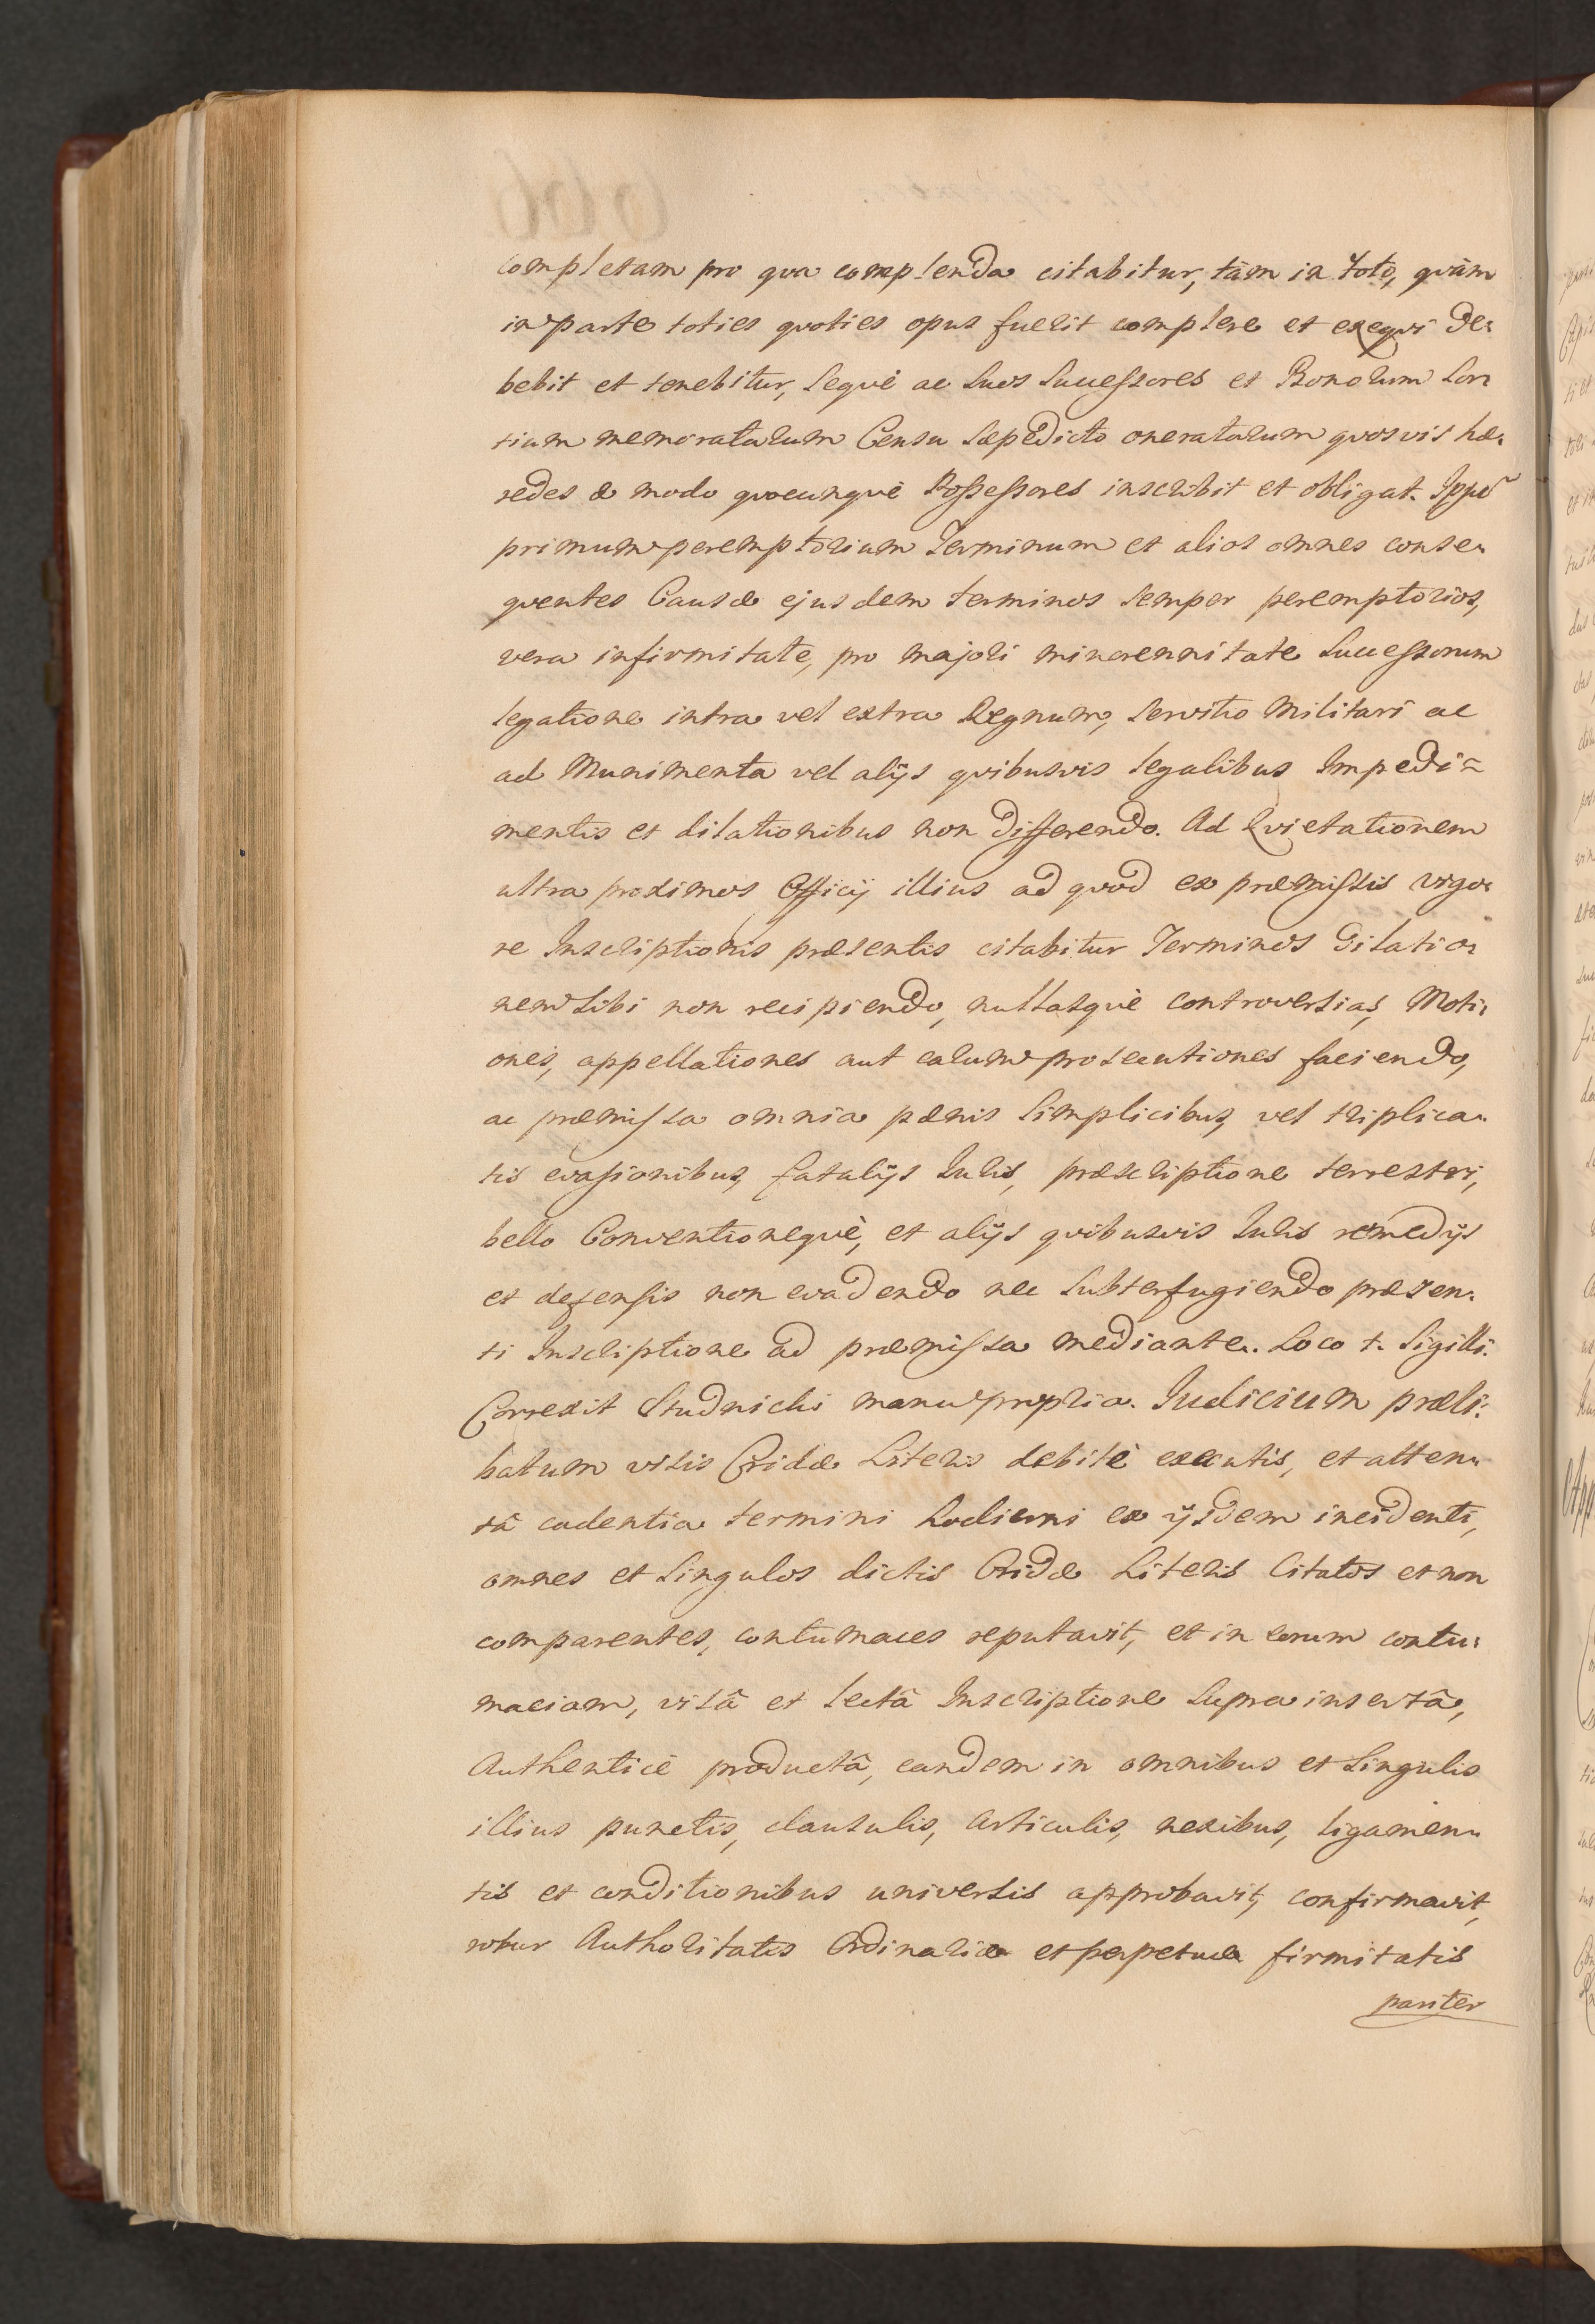 completam pro qva complenda citabitur, tàm in toto, qvàm
in parte toties qvoties opus fuerit complere et exeqvi de:
bebit et tenebitur, seqvè ac suos successores et Bonorum Sor:
tium memoratarum Censu sæpèdicto oneratarum qvosvis hæ:
redes & modo qvocunqvè Possessores inscribit et obligat.
primum peremptorium Terminum et alios omnes conse:
qventes Causæ ejusdem terminos semper peremptorios,
vera infirmitate, pro majori minorennitate Successorum
legatione intra vel extra Regnum, servitio Militari ac
ad Munimenta vel alijs qvibusvis legalibus Impedi:
mentis et dilationibus non differendo. Ad Qvietationem
ultra proximos Officij illius ad qvod ex præmissis vigo:
re Inscriptionis præsentis citabitur Terminos dilatio:
nem sibi non recipiendo, nullasqvè controversias, Moti:
ones, appellationes aut earum prosecutiones faciendo,
ac præmissa omnia pænis simplicibus, vel triplica:
tis evasionibus, fatalijs Iuris, præscriptione terrestri,
bello Conventioneqvè, et alijs qvibusvis Iuris remedijs
et defensis non evadendo nec subterfugiendo præsen:
ti Inscriptione ad præmissa mediante. Loco †. Sigilli.
Correxit Studnicki manu propria. Iudicium præli:
batum visis Cridæ Literis debitè executis, et atten:
tâ cadentia termini hodierni ex ijsdem incidenti,
omnes et singulos dictis Cridæ Literis Citatos et non
comparentes, contumaces reputavit, et in eorum contu:
maciam, visâ et lectâ Inscriptione supra insertâ,
Authenticè productâ, eandem in omnibus et singulis
illius punctis, clausulis, articulis, nexibus, ligamen:
tis et conditionibus universis approbavit, confirmavit,
robur Authoritatis Ordinariæ et perpetuæ firmitatis
pariter